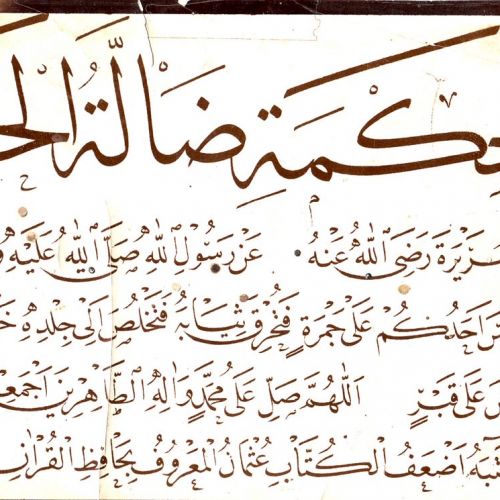 كِمَةِ ضَالَّةُ الْحَ
رَيْرَةَ رَضِىَ اللّٰهُ عَنْهُ عَنْ رَسُولِ اللّٰهِ صَلَّى اللّٰهُ عَلَيْهِ وَ
سَ اَحَدُكُمْ عَلَى جَمْرَةٍ فَتُحْرِقَ ثِيَابَهُ فَتَخْلُصَ اِلَى جِلْدِهِ خَ
عَلَى قَبْرٍ اَللّٰهُمَّ صَلِّ عَلَى مُحَمَّدٍ وَاٰلِهِ الطَّاهِرِينَ اَجْمَعِ
تَبَهُ اَضْعَفُ الْكُتَّابِ عُثْمَانُ الْمَعْرُوفُ بِحَافِظِ الْقُرْاٰنِ